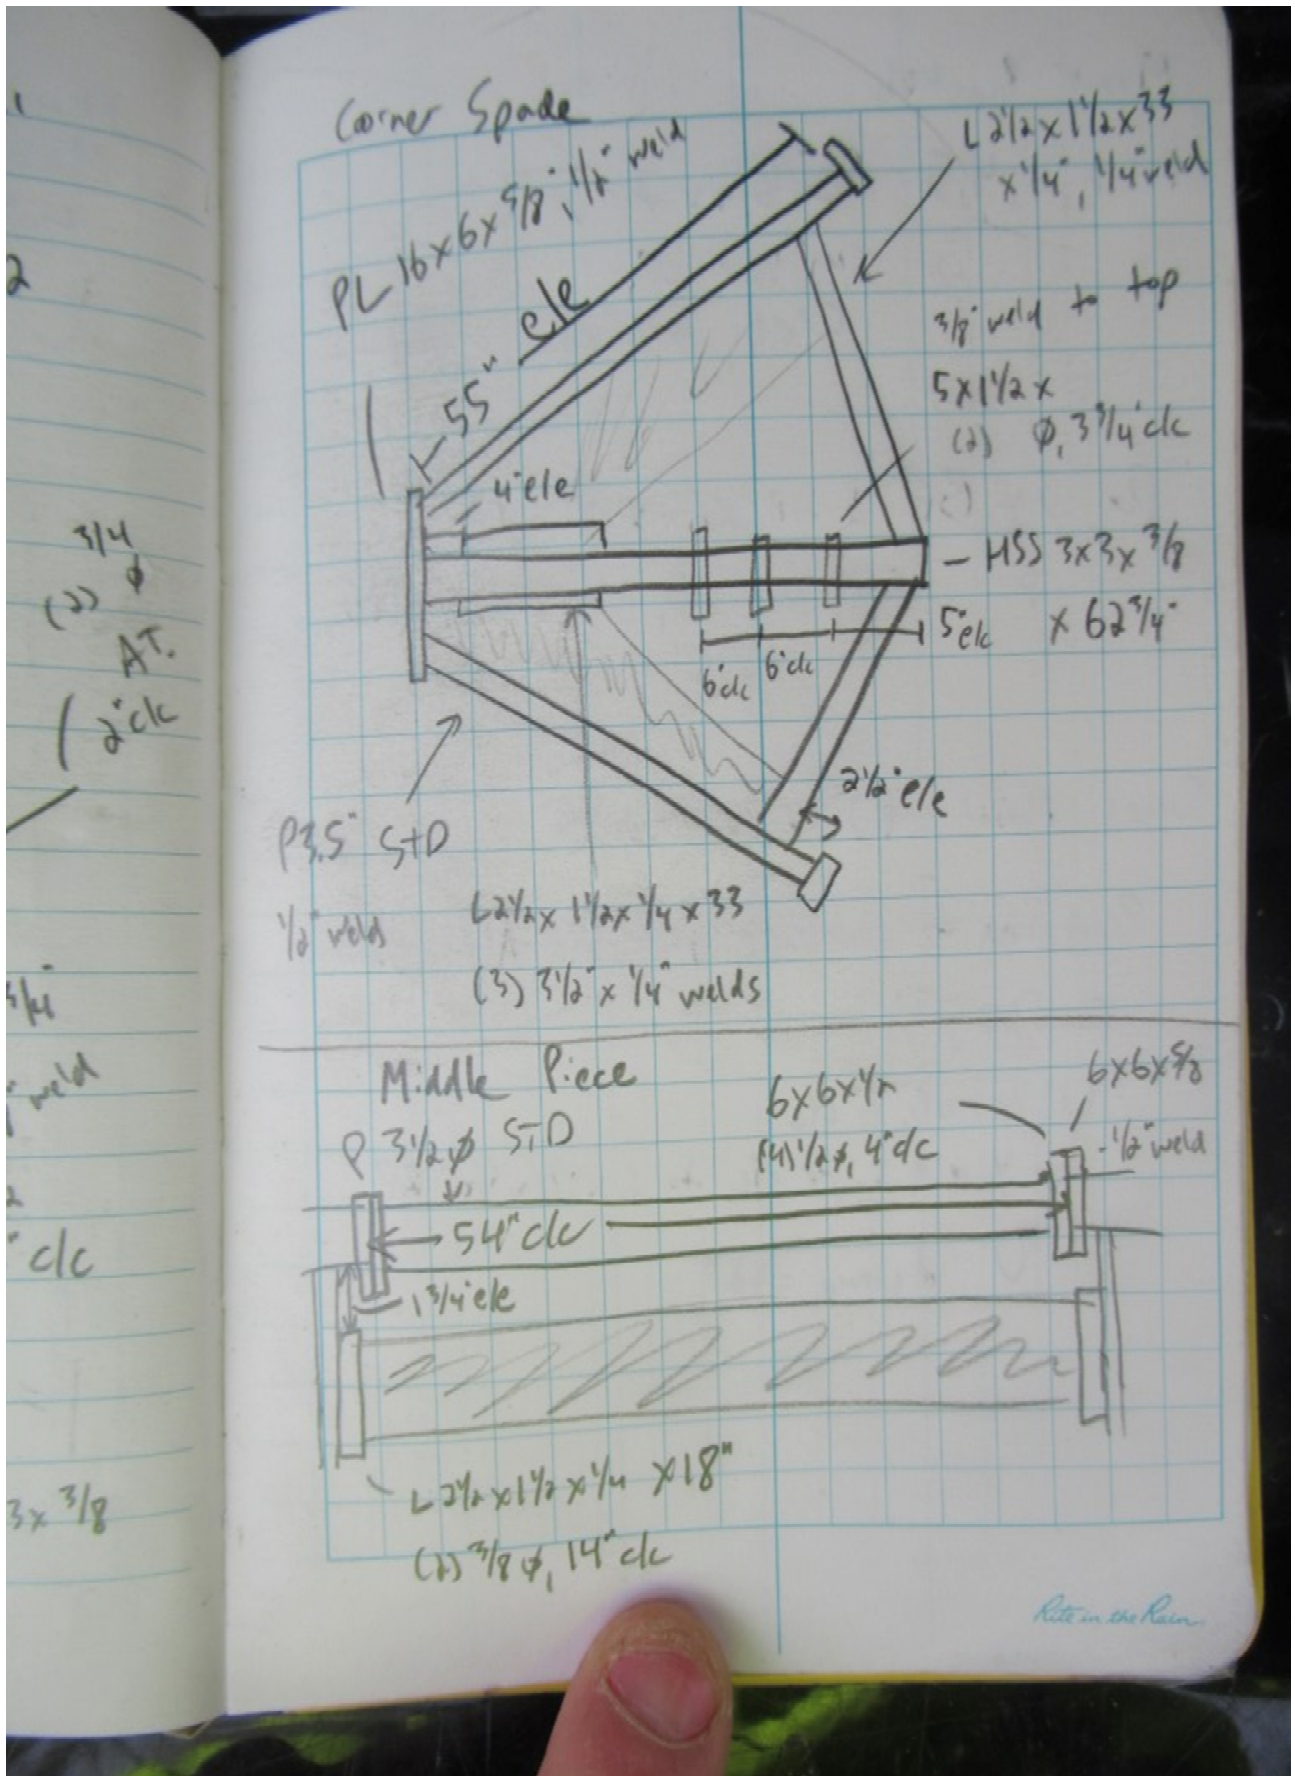 2
3/4
(2) φ
A.T.
2" c/c
3/4"
weld
2
" c/c
3x 3/8
Corner Spade
PL 16x6x 5/8", 1/2" weld
L 2 1/2 x 1 1/2 x 33
x 1/4", 1/4" weld
55" e/e
3/8" weld to top
5x1 1/2 x
(2) φ, 3 3/4" c/c
4" e/e
- HSS 3x3x 3/8
x 62 3/4"
5" e/c
6" c/c 6" c/c
2 1/2" e/e
P3.5" STD
1/2" welds
L 2 1/2 x 1 1/2 x 1/4 x 33
(3) 3 1/2" x 1/4" welds
Middle Piece
P 3 1/2 φ STD
6x6x 1/2
(4) 1/2 φ, 4" c/c
6x6x 5/8
- 1/2" weld
54" c/c
1 3/4" e/e
L 2 1/2 x 1 1/2 x 1/4 x 18"
(2) 3/8 φ, 14" c/c
Rite in the Rain